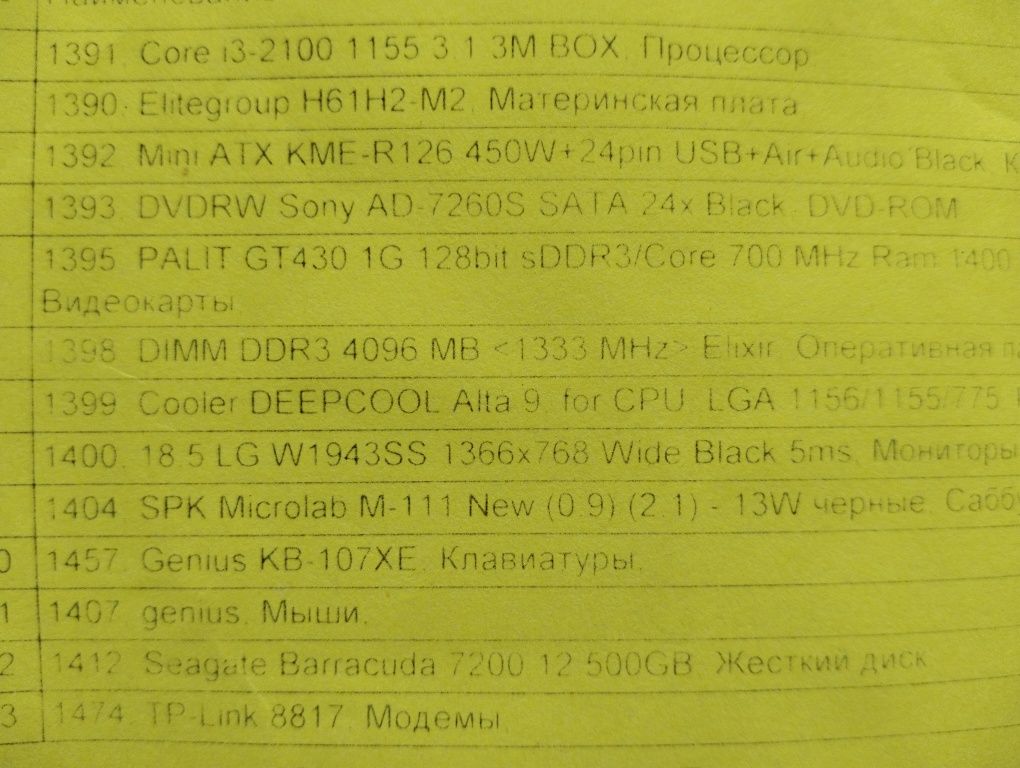 Наименование
1391. Core i3-2100 1155 3.1 3M BOX, Процессор
1390. Elitegroup H61H2-M2, Материнская плата
1392. Mini ATX KME-R126 450W+24pin USB+Air+Audio Black, К
1393. DVDRW Sony AD-7260S SATA 24x Black, DVD-ROM
1395. PALIT GT430 1G 128bit sDDR3/Core 700 MHz Ram 1400
Видеокарты
1398. DIMM DDR3 4096 MB <1333 MHz> Elixir. Оперативная
1399. Cooler DEEPCOOL Alta 9, for CPU, LGA 1156/1155/775
1400. 18.5 LG W1943SS 1366x768 Wide Black 5ms, Мониторы
1404. SPK Microlab M-111 New (0.9) (2.1) - 13W черные, Сабб
0 1457. Genius KB-107XE, Клавиатуры,
1 1407. genius, Мыши,
2 1412. Seagate Barracuda 7200.12 500GB, Жесткий диск
3 1474. TP-Link 8817, Модемы,